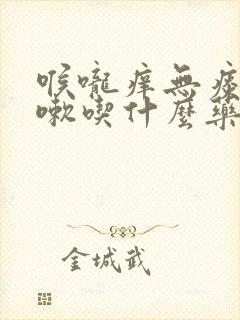 喉嚨痒無痰
嗽喫什麼藥
金城武